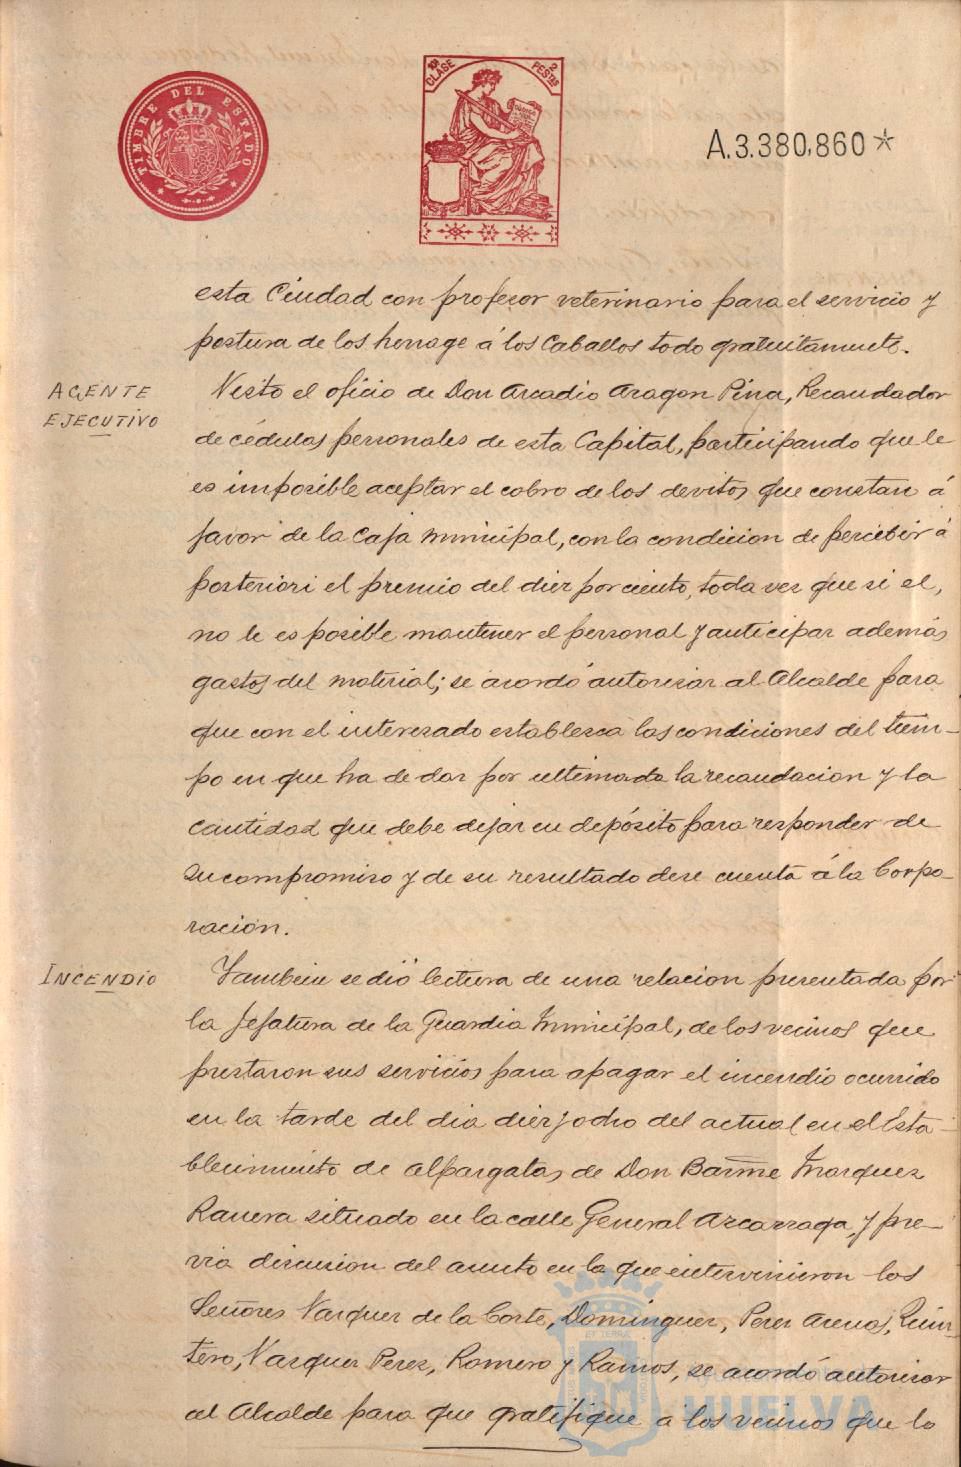 TIMBRE DEL ESTADO
10ª CLASE 2 PESTAS
A.3.380,860*
esta Ciudad con profesor veterinario para el servicio y
postura de los herrage á los Caballos todo gratuitamente.
AGENTE
EJECUTIVO
Visto el oficio de Don Arcadio Aragon Pina, Recaudador
de cédulas personales de esta Capital, participando que le
es imposible aceptar el cobro de los devitos que constan á
favor de la Caja Municipal, con la condicion de percibir á
posteriori el premio del diez por ciento, toda vez que si el,
no le es posible mantener el personal y anticipar además
gastos del material; se acordó autorizar al Alcalde para
que con el interesado establezca las condiciones del tiem-
po en que ha de dar por ultimada la recaudacion y la
cantidad que debe dejar en depósito para responder de
su compromiso y de su resultado dese cuenta á la Corpo-
racion.
INCENDIO
Tambien se dió lectura de una relacion presentada por
la Jefatura de la Guardia Municipal, de los vecinos que
prestaron sus servicios para apagar el incendio ocurrido
en la tarde del dia diez y ocho del actual en el Esta-
blecimiento de alpargatas de Don Barme Marquez
Ranera situado en la calle General Azcarraga, y pre-
via discusion del asunto en la que intervinieron los
Señores Vazquez de la Corte, Dominguez, Perez Arenas, Quin-
tero, Vazquez Perez, Romero y Ramos, se acordó autorizar
al Alcalde para que gratifique a los vecinos que lo
HUELVA